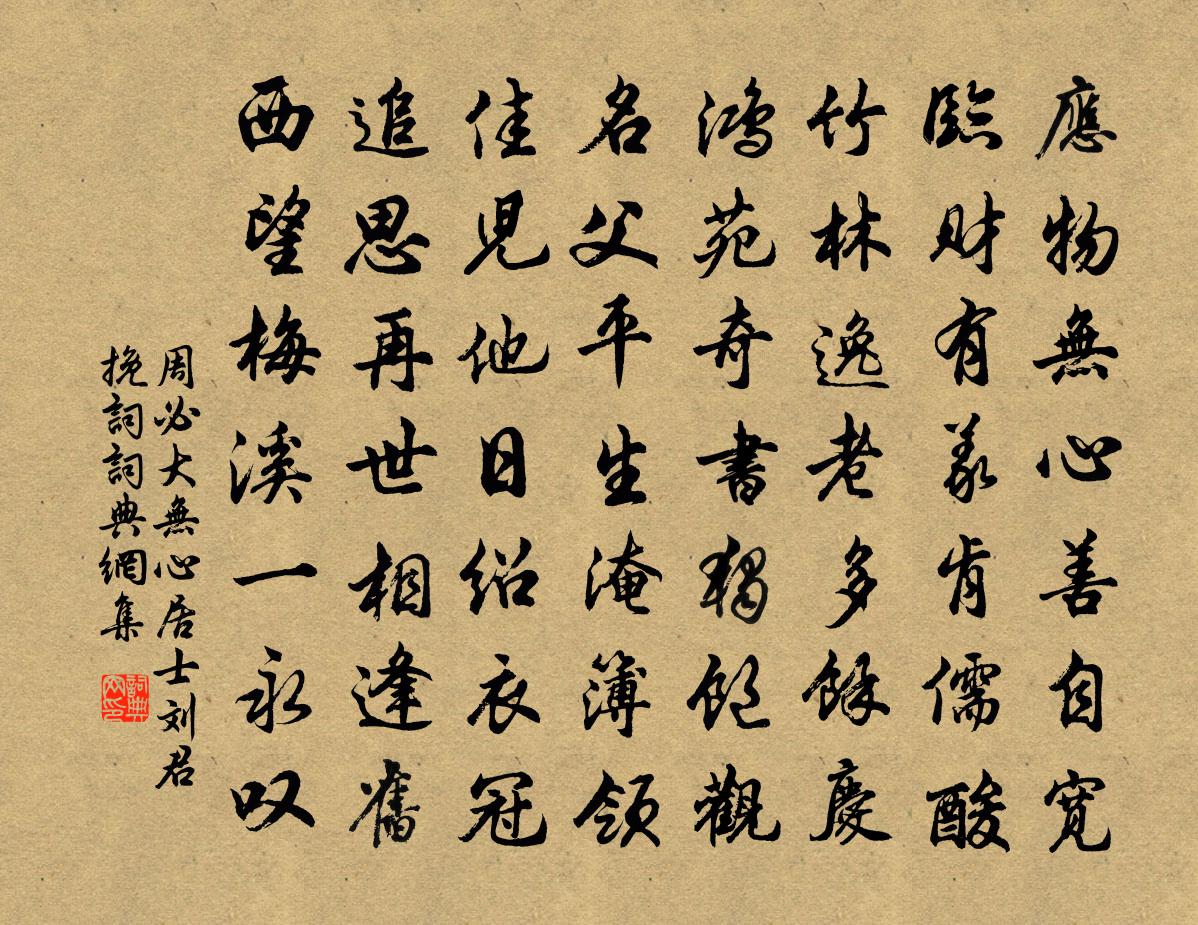 應物無心善自寬
臨財有義肯儒酸
竹林逸老多餘慶
鴻苑奇書獨飽觀
名父平生淹簿領
佳兒他日紹衣冠
追思再世相逢舊
西望梅溪一永叹
周必大無心居士刘君
挽詞詞典網集
詞典